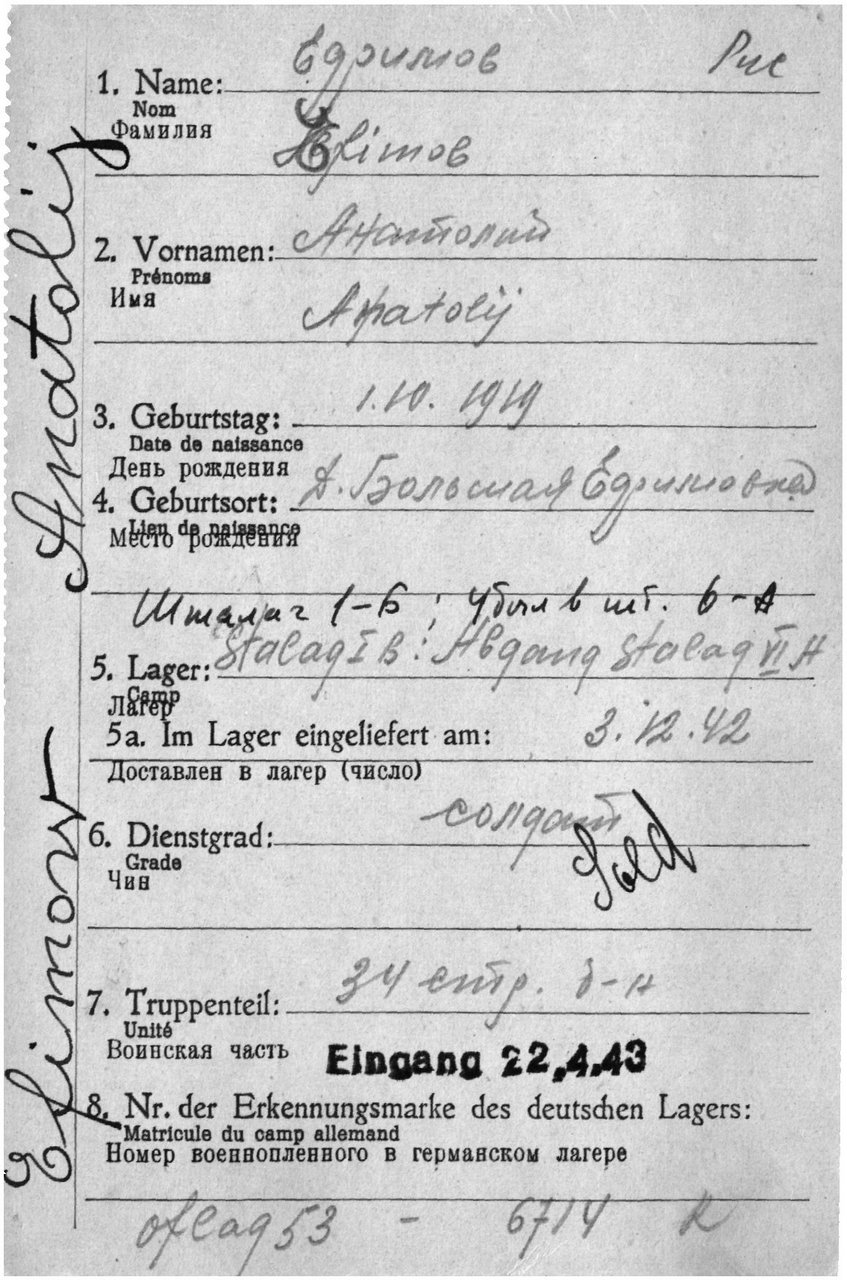 Ефимов Рус
1. Name:
Nom
Фамилия
Efimov
2. Vornamen: Анатолий
Prénoms
Имя
Anatolij
3. Geburtstag: 1.10. 1919
Date de naissance
День рождения
4. Geburtsort: д. Большая Ефимовка
Lieu de naissance
Место рождения
Шталаг 1-Б; убыл в шт. 6-А
5. Lager: Stalag I B: Abgang Stalag VI A
Camp
Лагер
5a. Im Lager eingeliefert am: 3.12.42
Доставлен в лагер (число)
6. Dienstgrad: солдат
Grade
Чин
Sold
7. Truppenteil: 34 стр. б-н
Unité
Воинская часть
Eingang 22.4.43
8. Nr. der Erkennungsmarke des deutschen Lagers:
Matricule du camp allemand
Номер военнопленного в германском лагере
oflag 53 - 6714 K
Efimow Anatolij